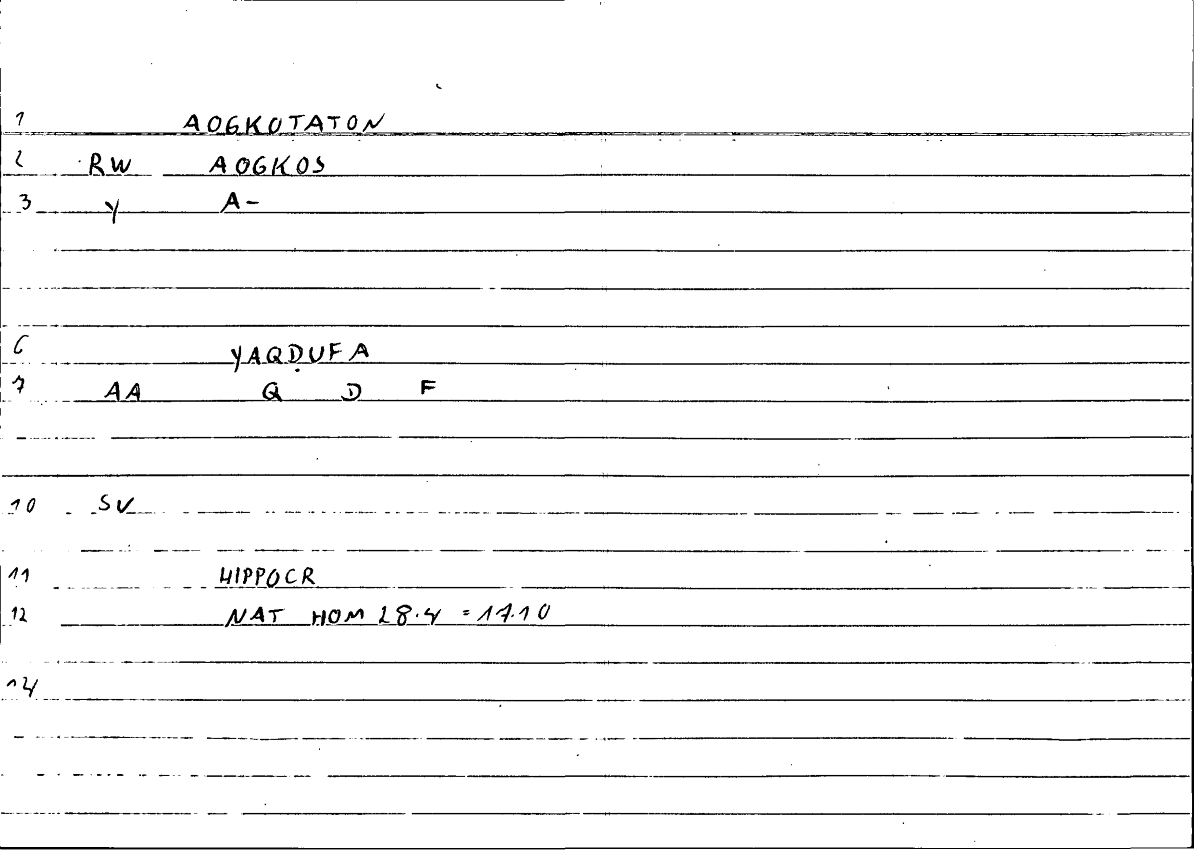 1 AOGKOTATON
2 RW AOGKOS
3 Y A-
6 YAQḌUFA
7 AA Q D F
10 SV
11 HIPPOCR
12 NAT HOM 28.4 = 17.10
14